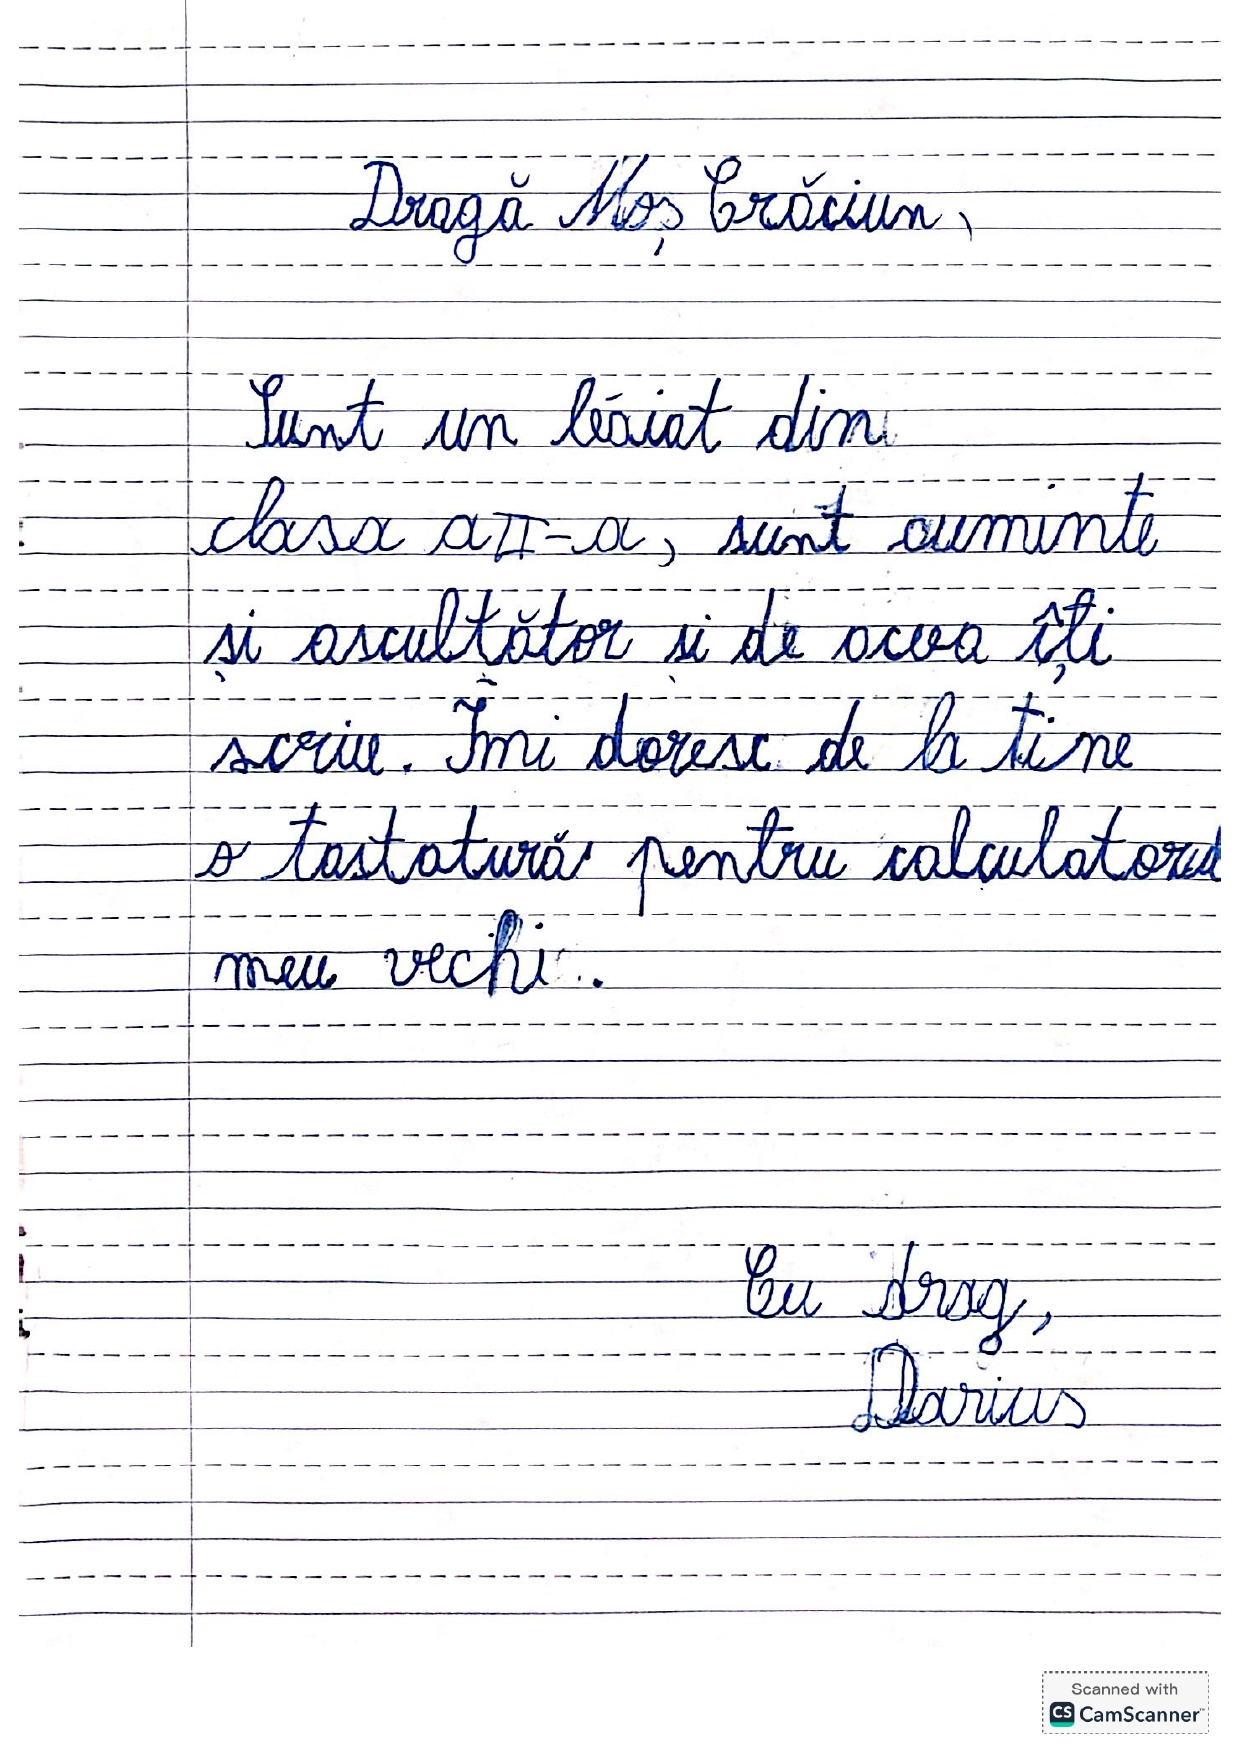 Dragă Moș Crăciun,
Sunt un băiat din
clasa a II-a, sunt cuminte
și ascultător și de aceea îți
scriu. Îmi doresc de la tine
o tastatură pentru calculatorul
meu vechi.
Cu drag,
Darius
Scanned with
CS CamScanner